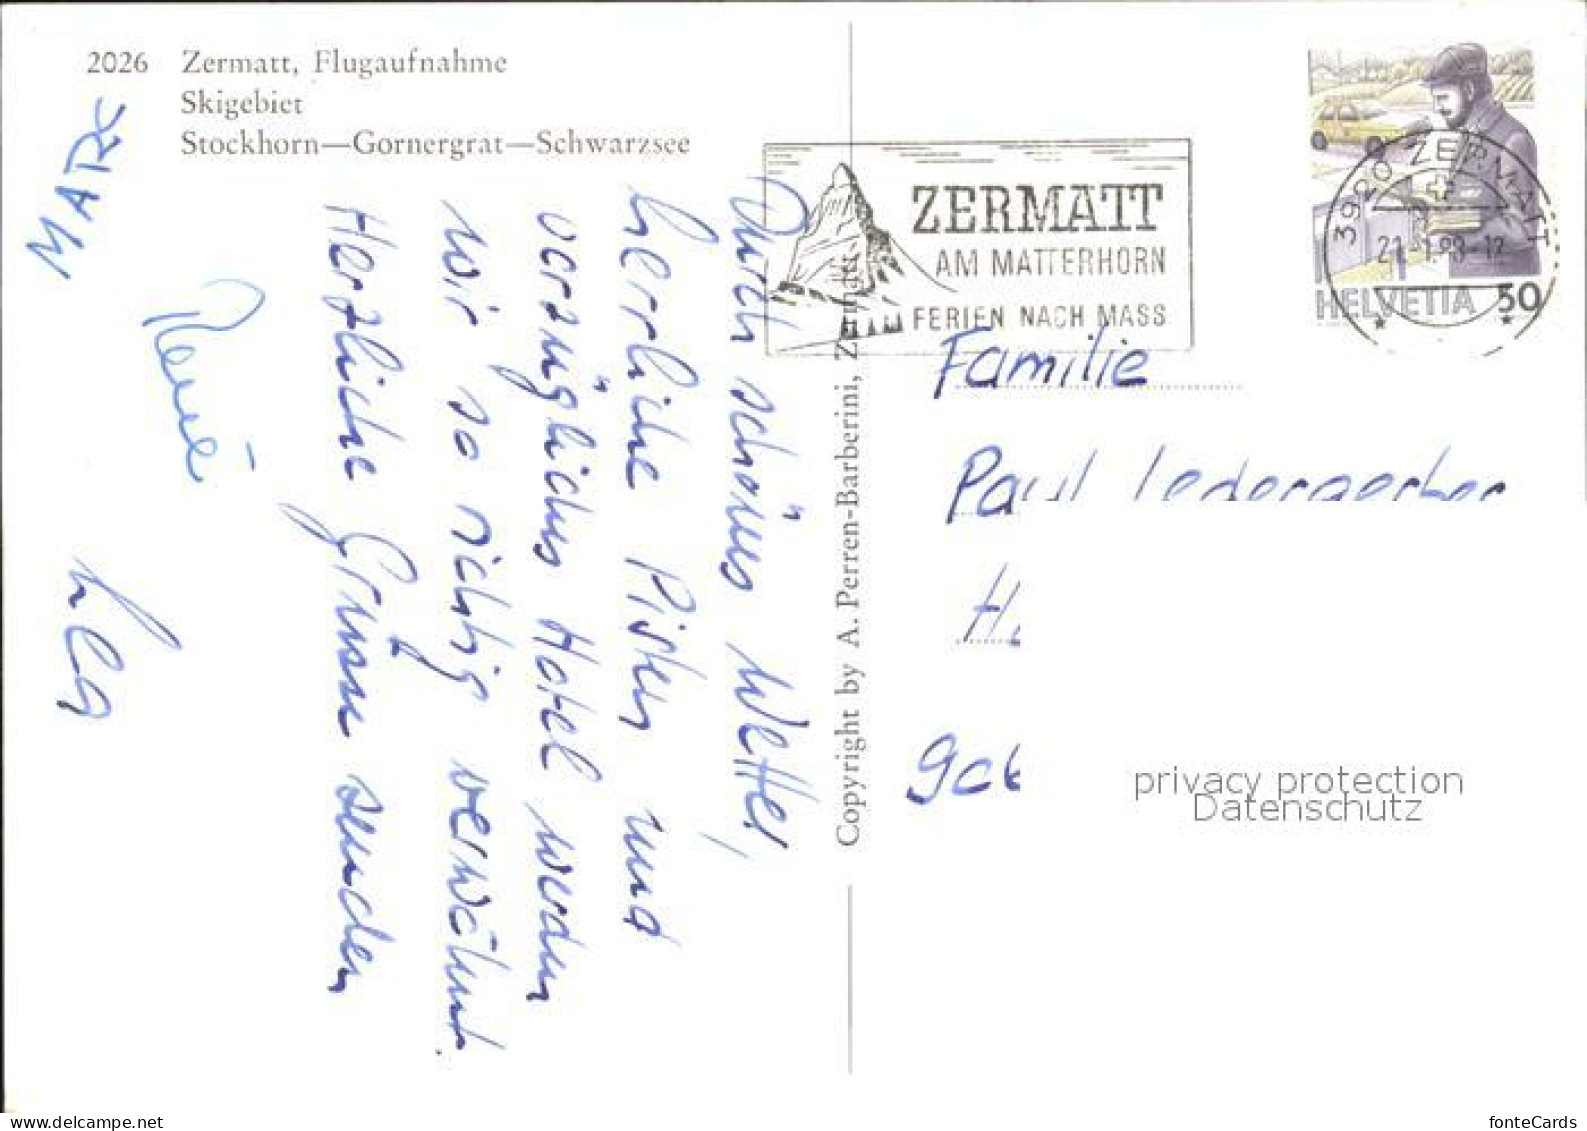 2026 Zermatt, Flugaufnahme
Skigebiet
Stockhorn—Gornergrat—Schwarzsee
Durch schönes Wetter,
herrliche Pisten und
vorzügliches Hotel werden
wir so richtig verwöhnt.
Herzliche Grüsse senden
René
MARC
Lea
Copyright by A. Perren-Barberini, Zermatt
ZERMATT
AM MATTERHORN
FERIEN NACH MASS
3920 ZERMATT
HELVETIA 50
Familie
Paul Ledergerber
H.
privacy protection
Datenschutz
www.delcampe.net
fonteCards